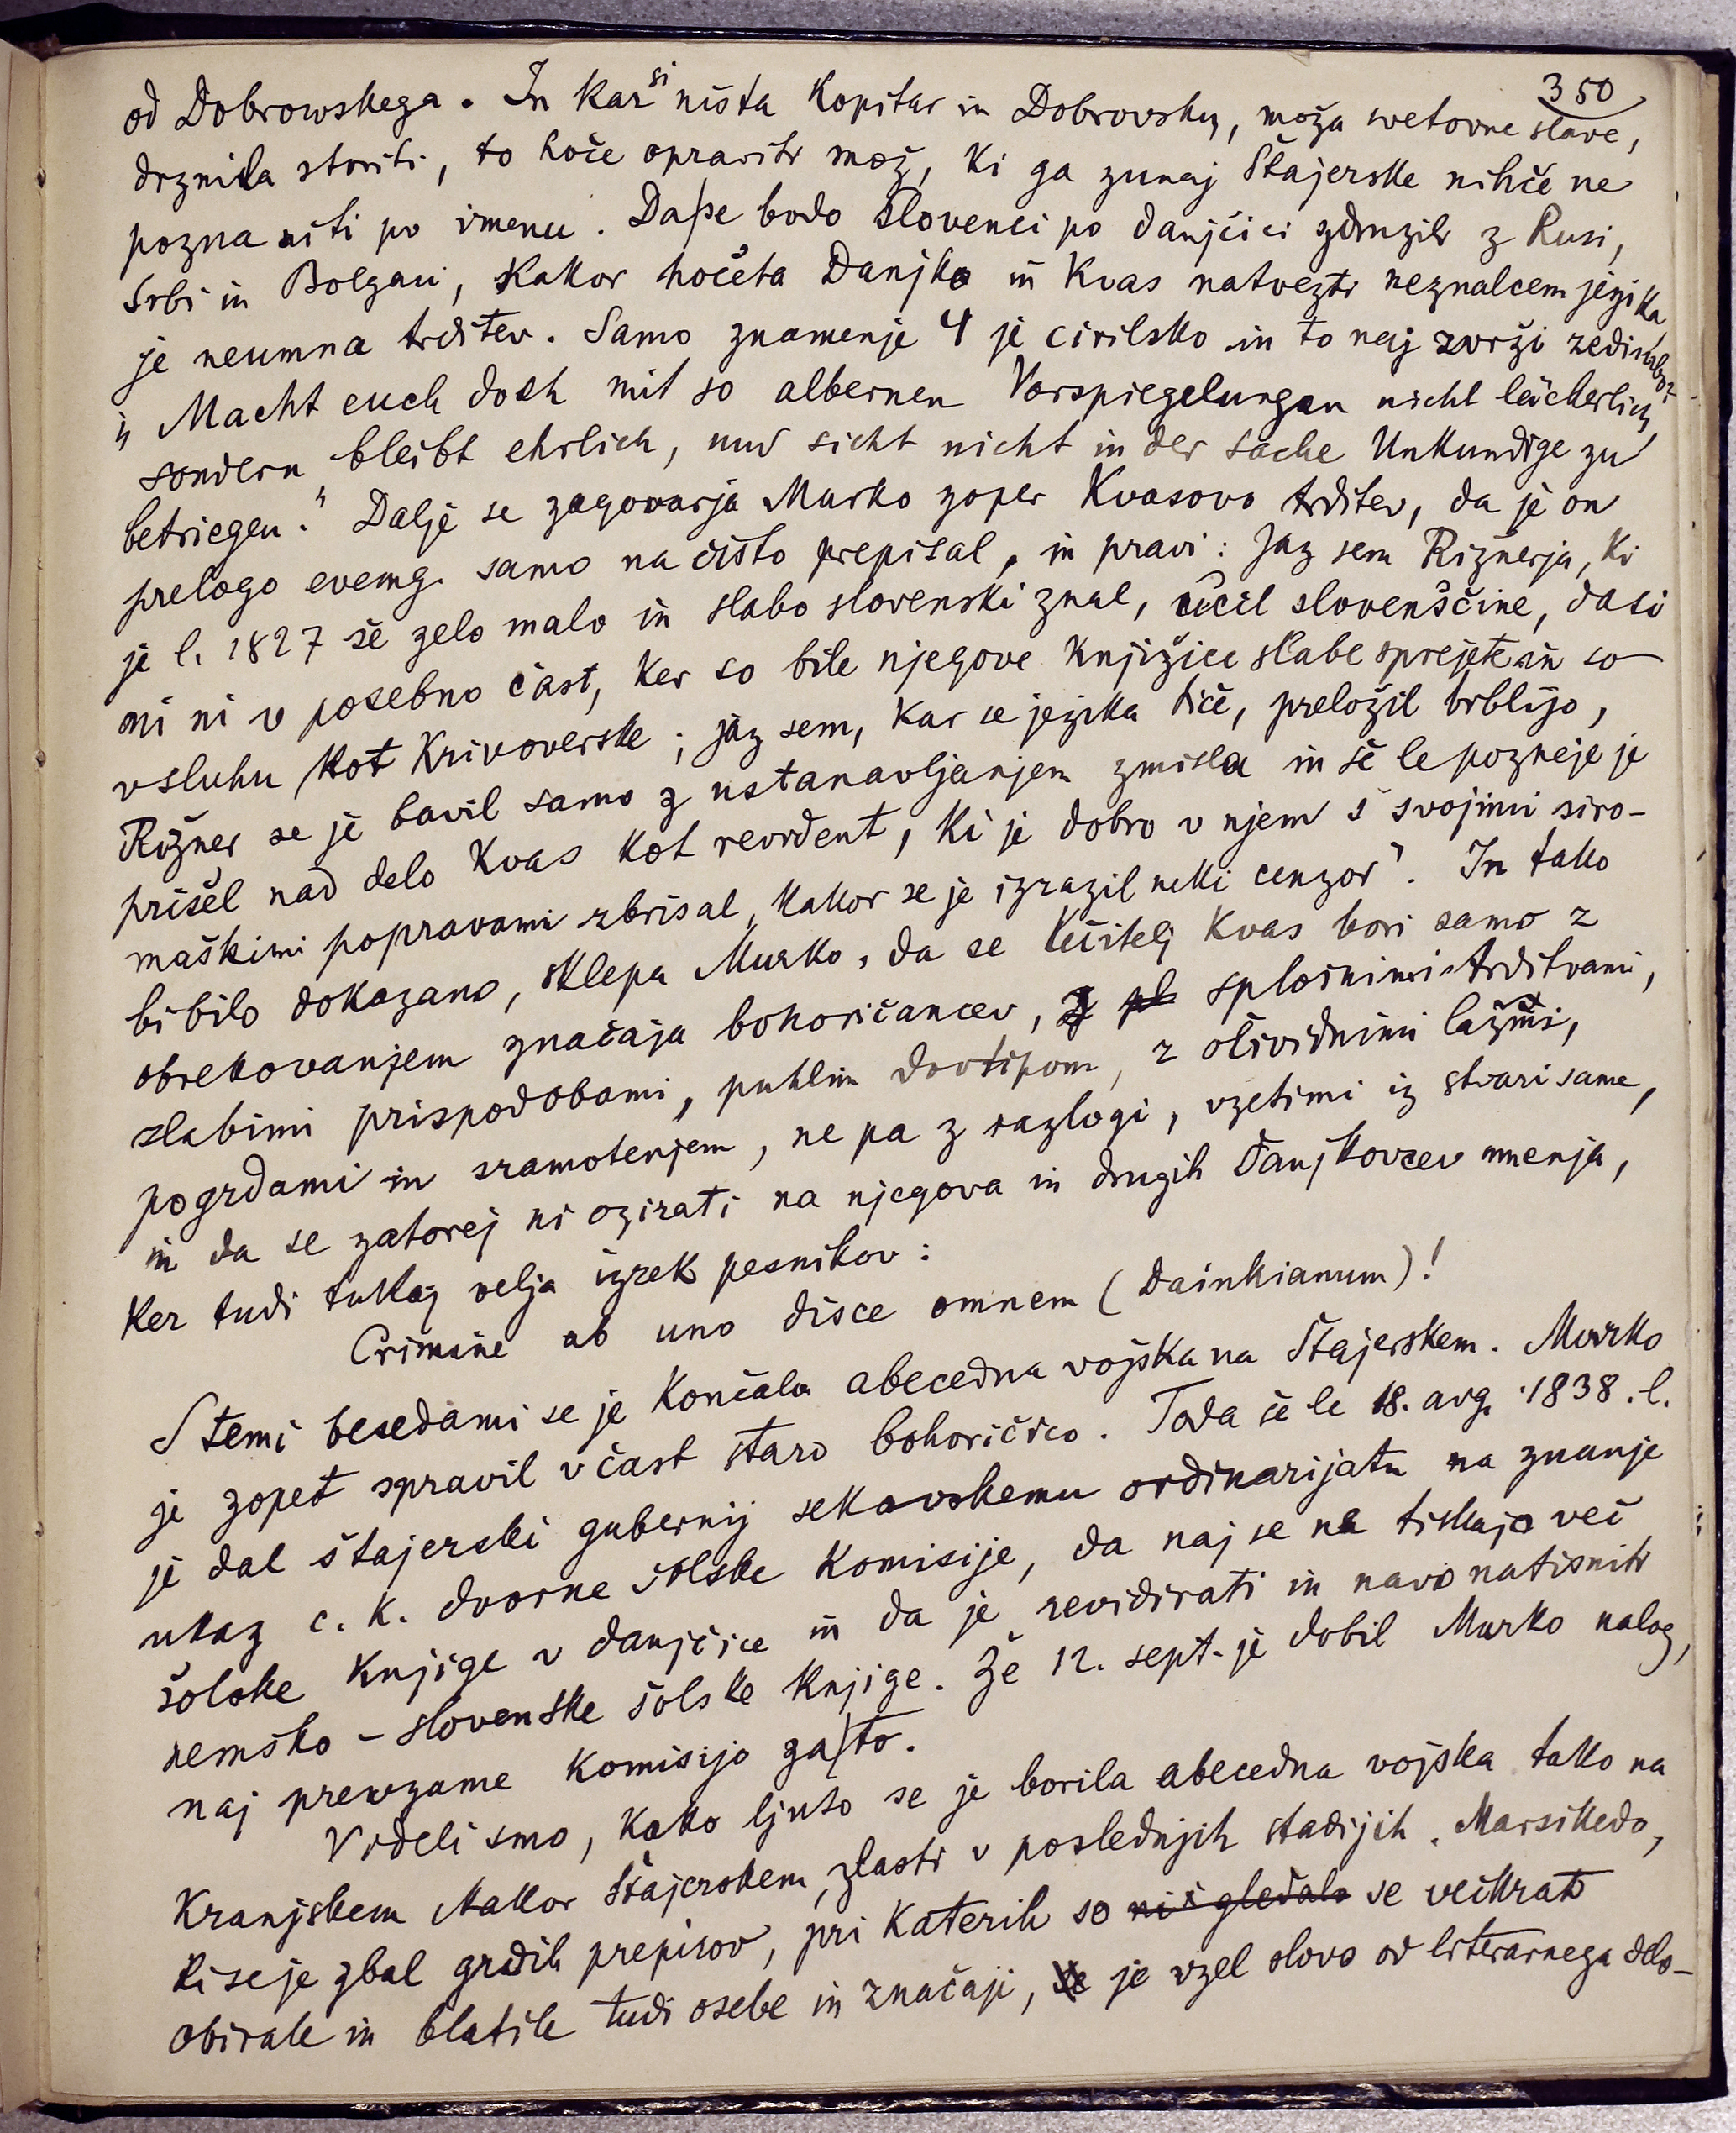 350
od Dobrowskega. In kar si nista Kopitar in Dobrovsky, moža svetovne slave,
drznila storiti, to hoče opraviti mož, ki ga zunaj Štajerske nihče ne
pozna niti po imenu. Da se bodo Slovenci po danjčici združili z Rusi,
Srbi in Bolgari, kakor hočeta Danjko in Kvas natvezti neznalcem jezika
je neumna trditev. Samo znamenje Ч je cirilsko in to naj zvrši zedinbo:
„Macht euch doch mit so albernen Vorspiegelungen nicht lächerlich,
sondern bleibt ehrlich, und sicht nicht in der Sache Unkundige zu
betriegen.“ Dalje se zagovarja Murko zoper Kvasovo trditev, da je on
prelogo evang. samo na čisto prepisal, in pravi: Jaz sem Rižnerja, ki
je l. 1827 še zelo malo in slabo slovenski znal, učil slovenščine, dasi
mi ni v posebno čast, ker so bile njegove knjižice slabe sprejete in so
v sluhu kot krivoverske; jaz sem, kar se jezika tiče, preložil biblijo,
Rižner se je bavil samo z ustanavljanjem zmisla in še le pozneje je
prišel nad delo Kvas kot revident, ki je dobro v njem s svojimi siro-
maškimi popravami zbrisal, kakor se je izrazil neki cenzor“. In tako
bi bilo dokazano, sklepa Murko, da se učitelj Kvas bori samo z
obrekovanjem značaja bohoričancev, splošnimi trditvami,
slabimi prispodobami, puhlim dovtipom, z očividnimi lažmi,
pogrdami in sramotenjem, ne pa z razlogi, vzetimi iz stvari same,
in da se zatorej ni ozirati na njegova in drugih Danjkovcev mnenja,
ker tudi tukaj velja izrek pesnikov:
Crimine ab uno disce omnem (Dainkianum)!
S temi besedami se je končala abecedna vojska na Štajerskem. Murko
je zopet spravil v čast staro bohoričico. Toda še le 18. avg. 1838. l.
je dal štajerski gubernij sekovskemu ordinarijatu na znanje
ukaz c. k. dvorne šolske komisije, da naj se ne tiskajo več
šolske knjige v danjčice in da je revidirati in navo natisniti
nemško-slovenske šolske knjige. Že 12. sept. je dobil Murko nalog,
naj prevzame komisijo za to.
Videli smo, kako ljuto se je borila abecedna vojska tako na
Kranjskem kakor Štajerskem, zlasti v poslednjih stadijih. Marsikedo,
ki se je zbal grdih prepirov, pri katerih so nič gledalo se večkrat
obirale in blatile tudi osebe in značaji, je vzel slovo od literarnega delo-